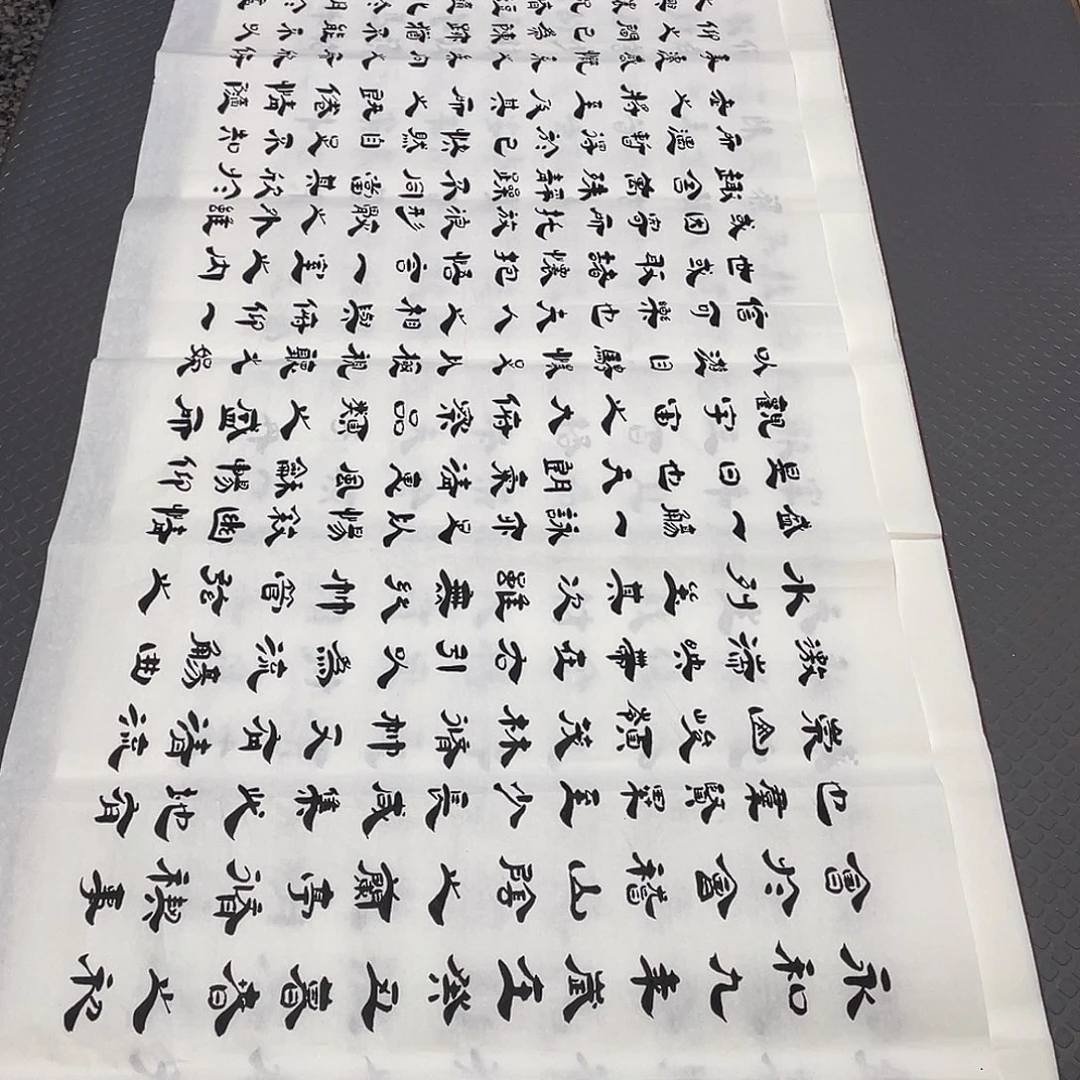 永和九年歲在癸丑暮春之初
會於會稽山陰之蘭亭脩禊事
也羣賢畢至少長咸集此地有
崇山峻領茂林脩竹又有清流
激湍映帶左右引以為流觴曲
水列坐其次雖無絲竹管弦之
盛一觴一詠亦足以暢敘幽情
是日也天朗氣清惠風和暢仰
觀宇宙之大俯察品類之盛所
以遊目騁懷足以極視聽之娛
信可樂也夫人之相與俯仰一
世或取諸懷抱悟言一室之內
或因寄所託放浪形骸之外雖
趣舍萬殊靜躁不同當其欣於
所遇暫得於己快然自足不知
老之將至及其所之既倦情隨
事遷感慨係之矣向之所欣俛
仰之間已為陳跡猶不能不以